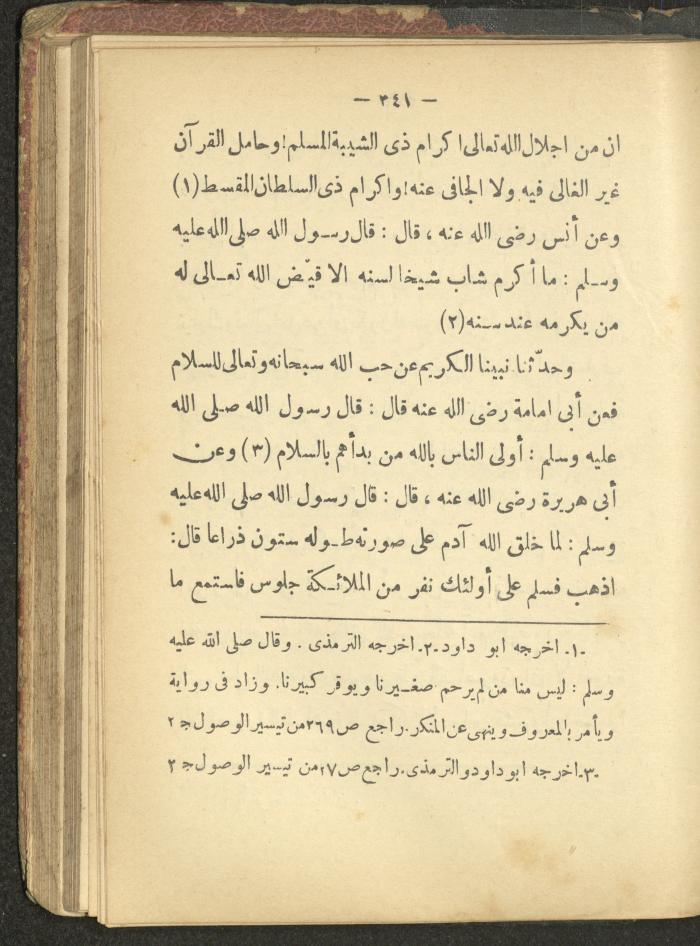 — ٣٤١ —
ان من اجلال الله تعالى اكرام ذى الشيبة المسلم! وحامل القرآن
غير الغالى فيه ولا الجافى عنه! واكرام ذى السلطان المقسط (١)
وعن أنس رضى الله عنه ، قال : قال رسول الله صلى الله عليه
وسلم : ما أكرم شاب شيخا لسنه الا قيّض الله تعالى له
من يكرمه عند سنه (٢)
وحدّثنا نبينا الكريم عن حب الله سبحانه وتعالى للسلام
فعن أبى امامة رضى الله عنه قال : قال رسول الله صلى الله
عليه وسلم : أولى الناس بالله من بدأهم بالسلام (٣) وعن
أبى هريرة رضى الله عنه ، قال : قال رسول الله صلى الله عليه
وسلم : لما خلق الله آدم على صورته طوله ستون ذراعا قال :
اذهب فسلم على أولئك نفر من الملائكة جلوس فاستمع ما
١- اخرجه ابو داود ٢- اخرجه الترمذى . وقال صلى الله عليه
وسلم : ليس منا من لم يرحم صغيرنا ويوقر كبيرنا. وزاد فى رواية
ويأمر بالمعروف وينهى عن المنكر. راجع ص ٢٦٩ من تيسير الوصول ج ٢
٣- اخرجه ابو داود والترمذى. راجع ص من تيسير الوصول ج ٢